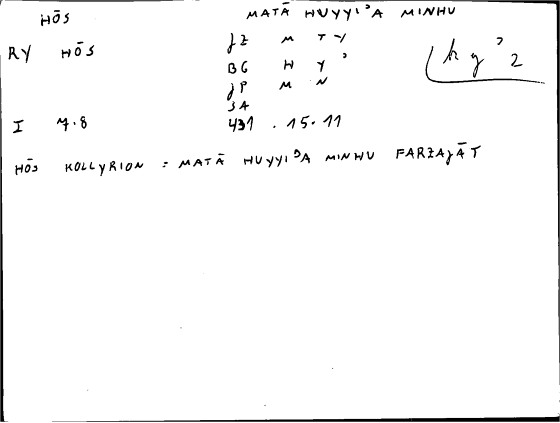 HŌS MATĀ HUYYIʾA MINHU
RY HŌS JZ M TY
BG H Y ʾ
JP M N
3A
I 7.8 431 . 15.11
h y ʾ 2
HŌS KOLLYRION = MATĀ HUYYIʾA MINHU FARZAJĀT